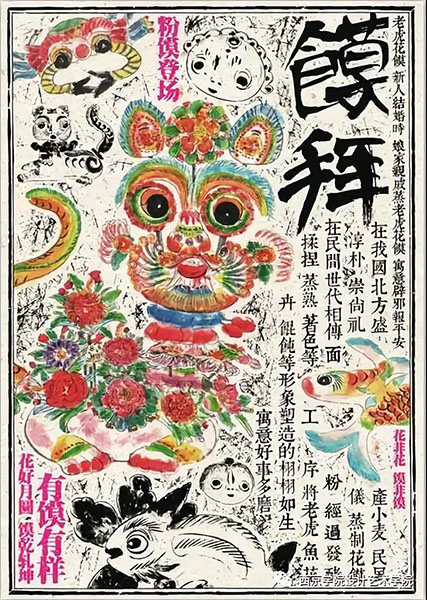 老虎花饃 新人結婚時 娘家親戚蒸老虎花饃 寓意辟邪報平安
饃拜
粉馍登场
在我國北方盛產小麥 民
淳朴 崇尚礼儀 蒸制花
在民間世代相傳 面粉 經過發酵
揉捏 蒸熟 著色等 工序 將老虎 魚 花
卉 餛飩等形象塑造的栩栩如生
寓意好事多磨
花非花 馍非馍
有馍有样
花好月圆 馍乾轧坤
西京学院设计艺术学院